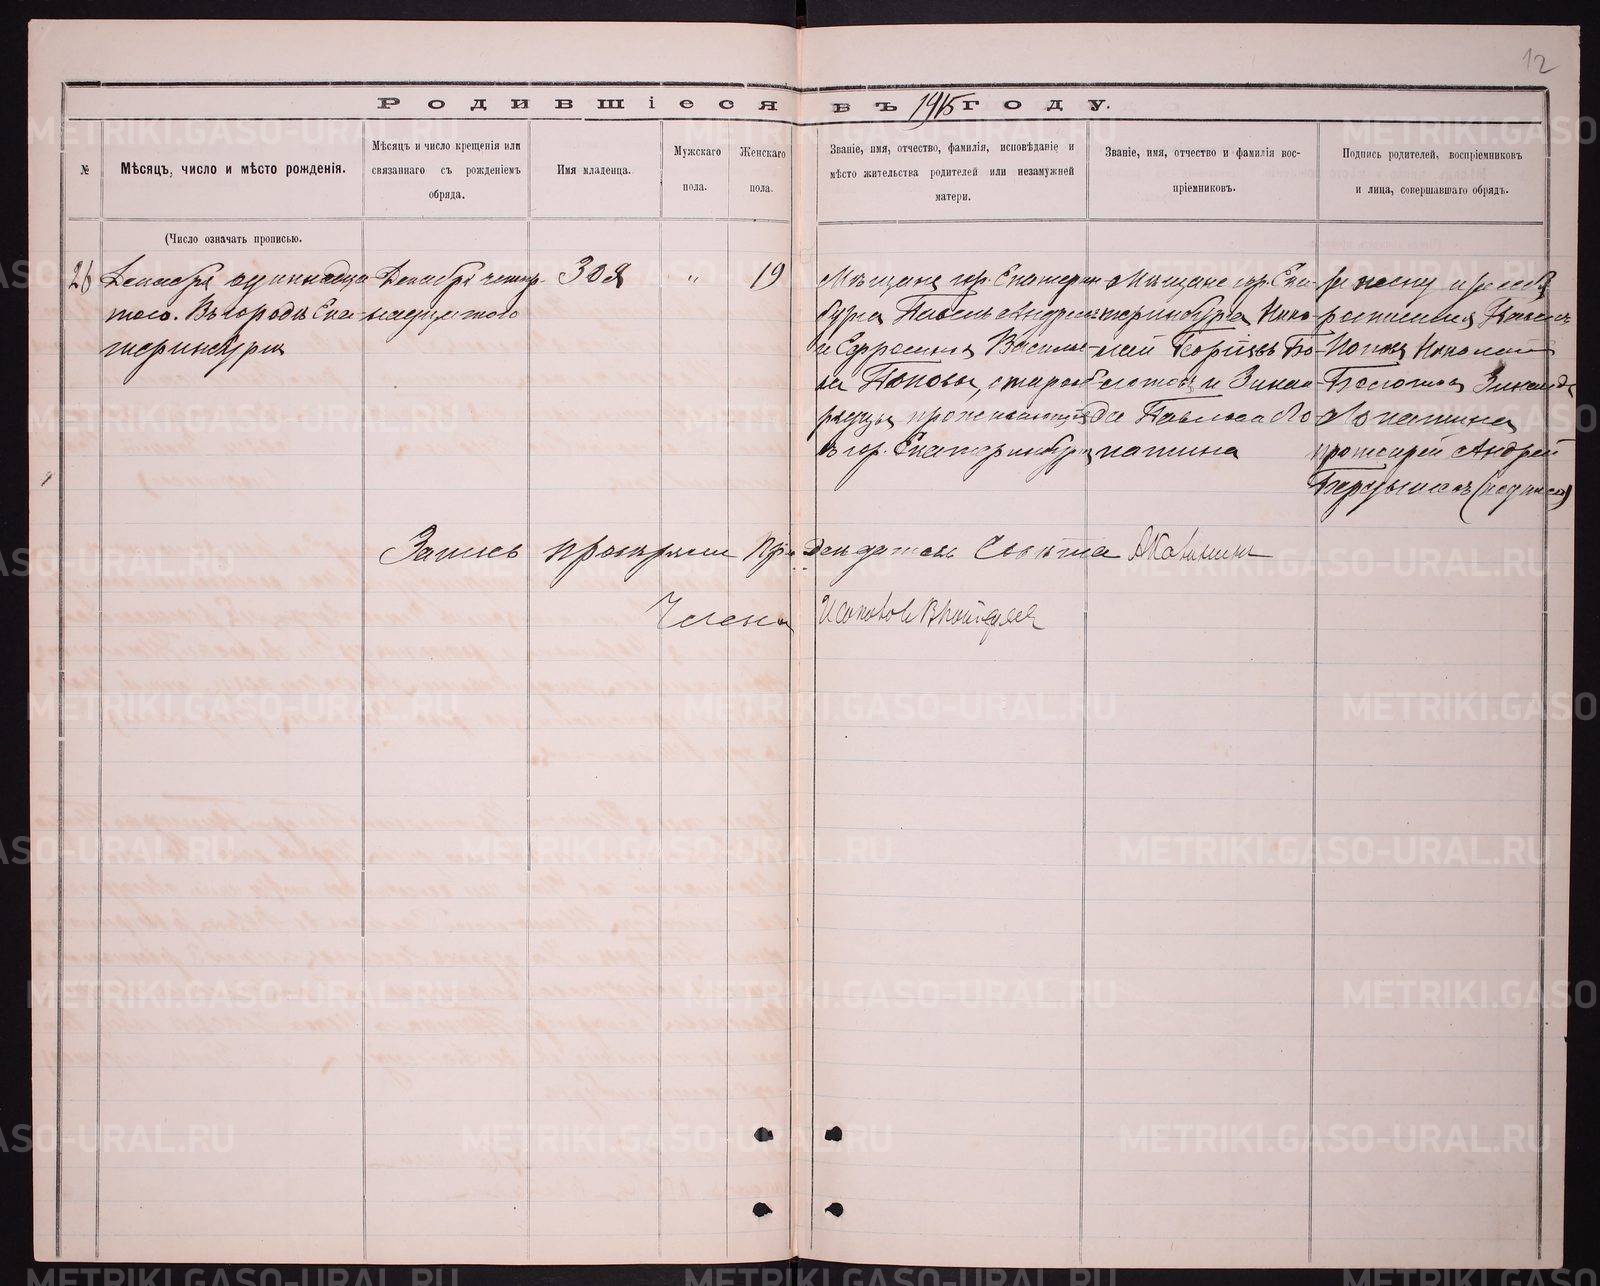 12
Родившіеся въ 1915 году.
№
Мѣсяцъ, число и мѣсто рожденія.
Мѣсяцъ и число крещенія или
связаннаго съ рожденіемъ
обряда.
Имя младенца.
Мужскаго
пола.
Женскаго
пола.
Званіе, имя, отчество, фамилія, исповѣданіе и
мѣсто жительства родителей или незамужней
матери.
Званіе, имя, отчество и фамилія вос-
пріемниковъ.
Подпись родителей, воспріемниковъ
и лица, совершавшаго обрядъ.
(Число означать прописью.
26
Декабря одиннадца
того. Въ городѣ Ека-
теринбургѣ
Декабря четыр-
надцатого
Зоя
"
19
Мѣщане гор. Екатерин
бурга Павелъ Андреев
и Ефросинія Василье-
ва Поповы, старооб
рядцы проживающіе
въ гор. Екатеринбургѣ
Мѣщане гор. Ека-
теринбурга Нико-
лай
и Зинаи-
да Павлова Ло-
патина
росписался Павелъ
Поповъ Николай
Зинаида
Лопатина
протоіерей Андрей
(подписи)
Запись провѣряли Предсѣдатель Совѣта
Члены
METRIKI.GASO-URAL.RU